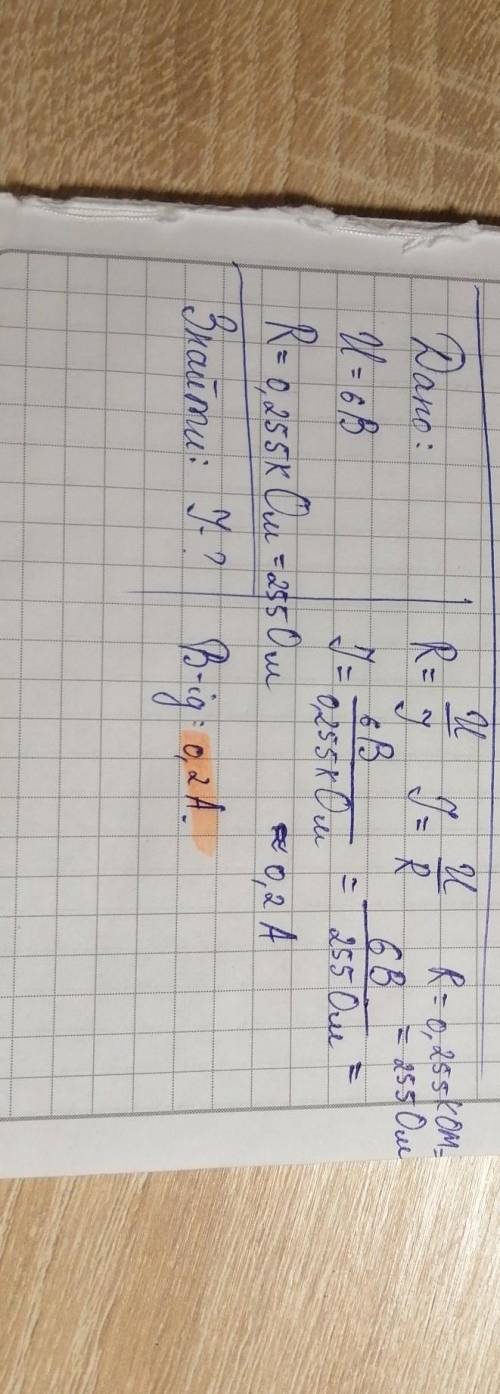 Дано:
U = 6В
R = 0,255кОм = 255Ом
Знайти: I - ?
R = U/I I = U/R R = 0,255кОм =
= 255Ом
I = 6В/0,255кОм = 6В/255Ом =
≈ 0,2А
В-ід: 0,2А.